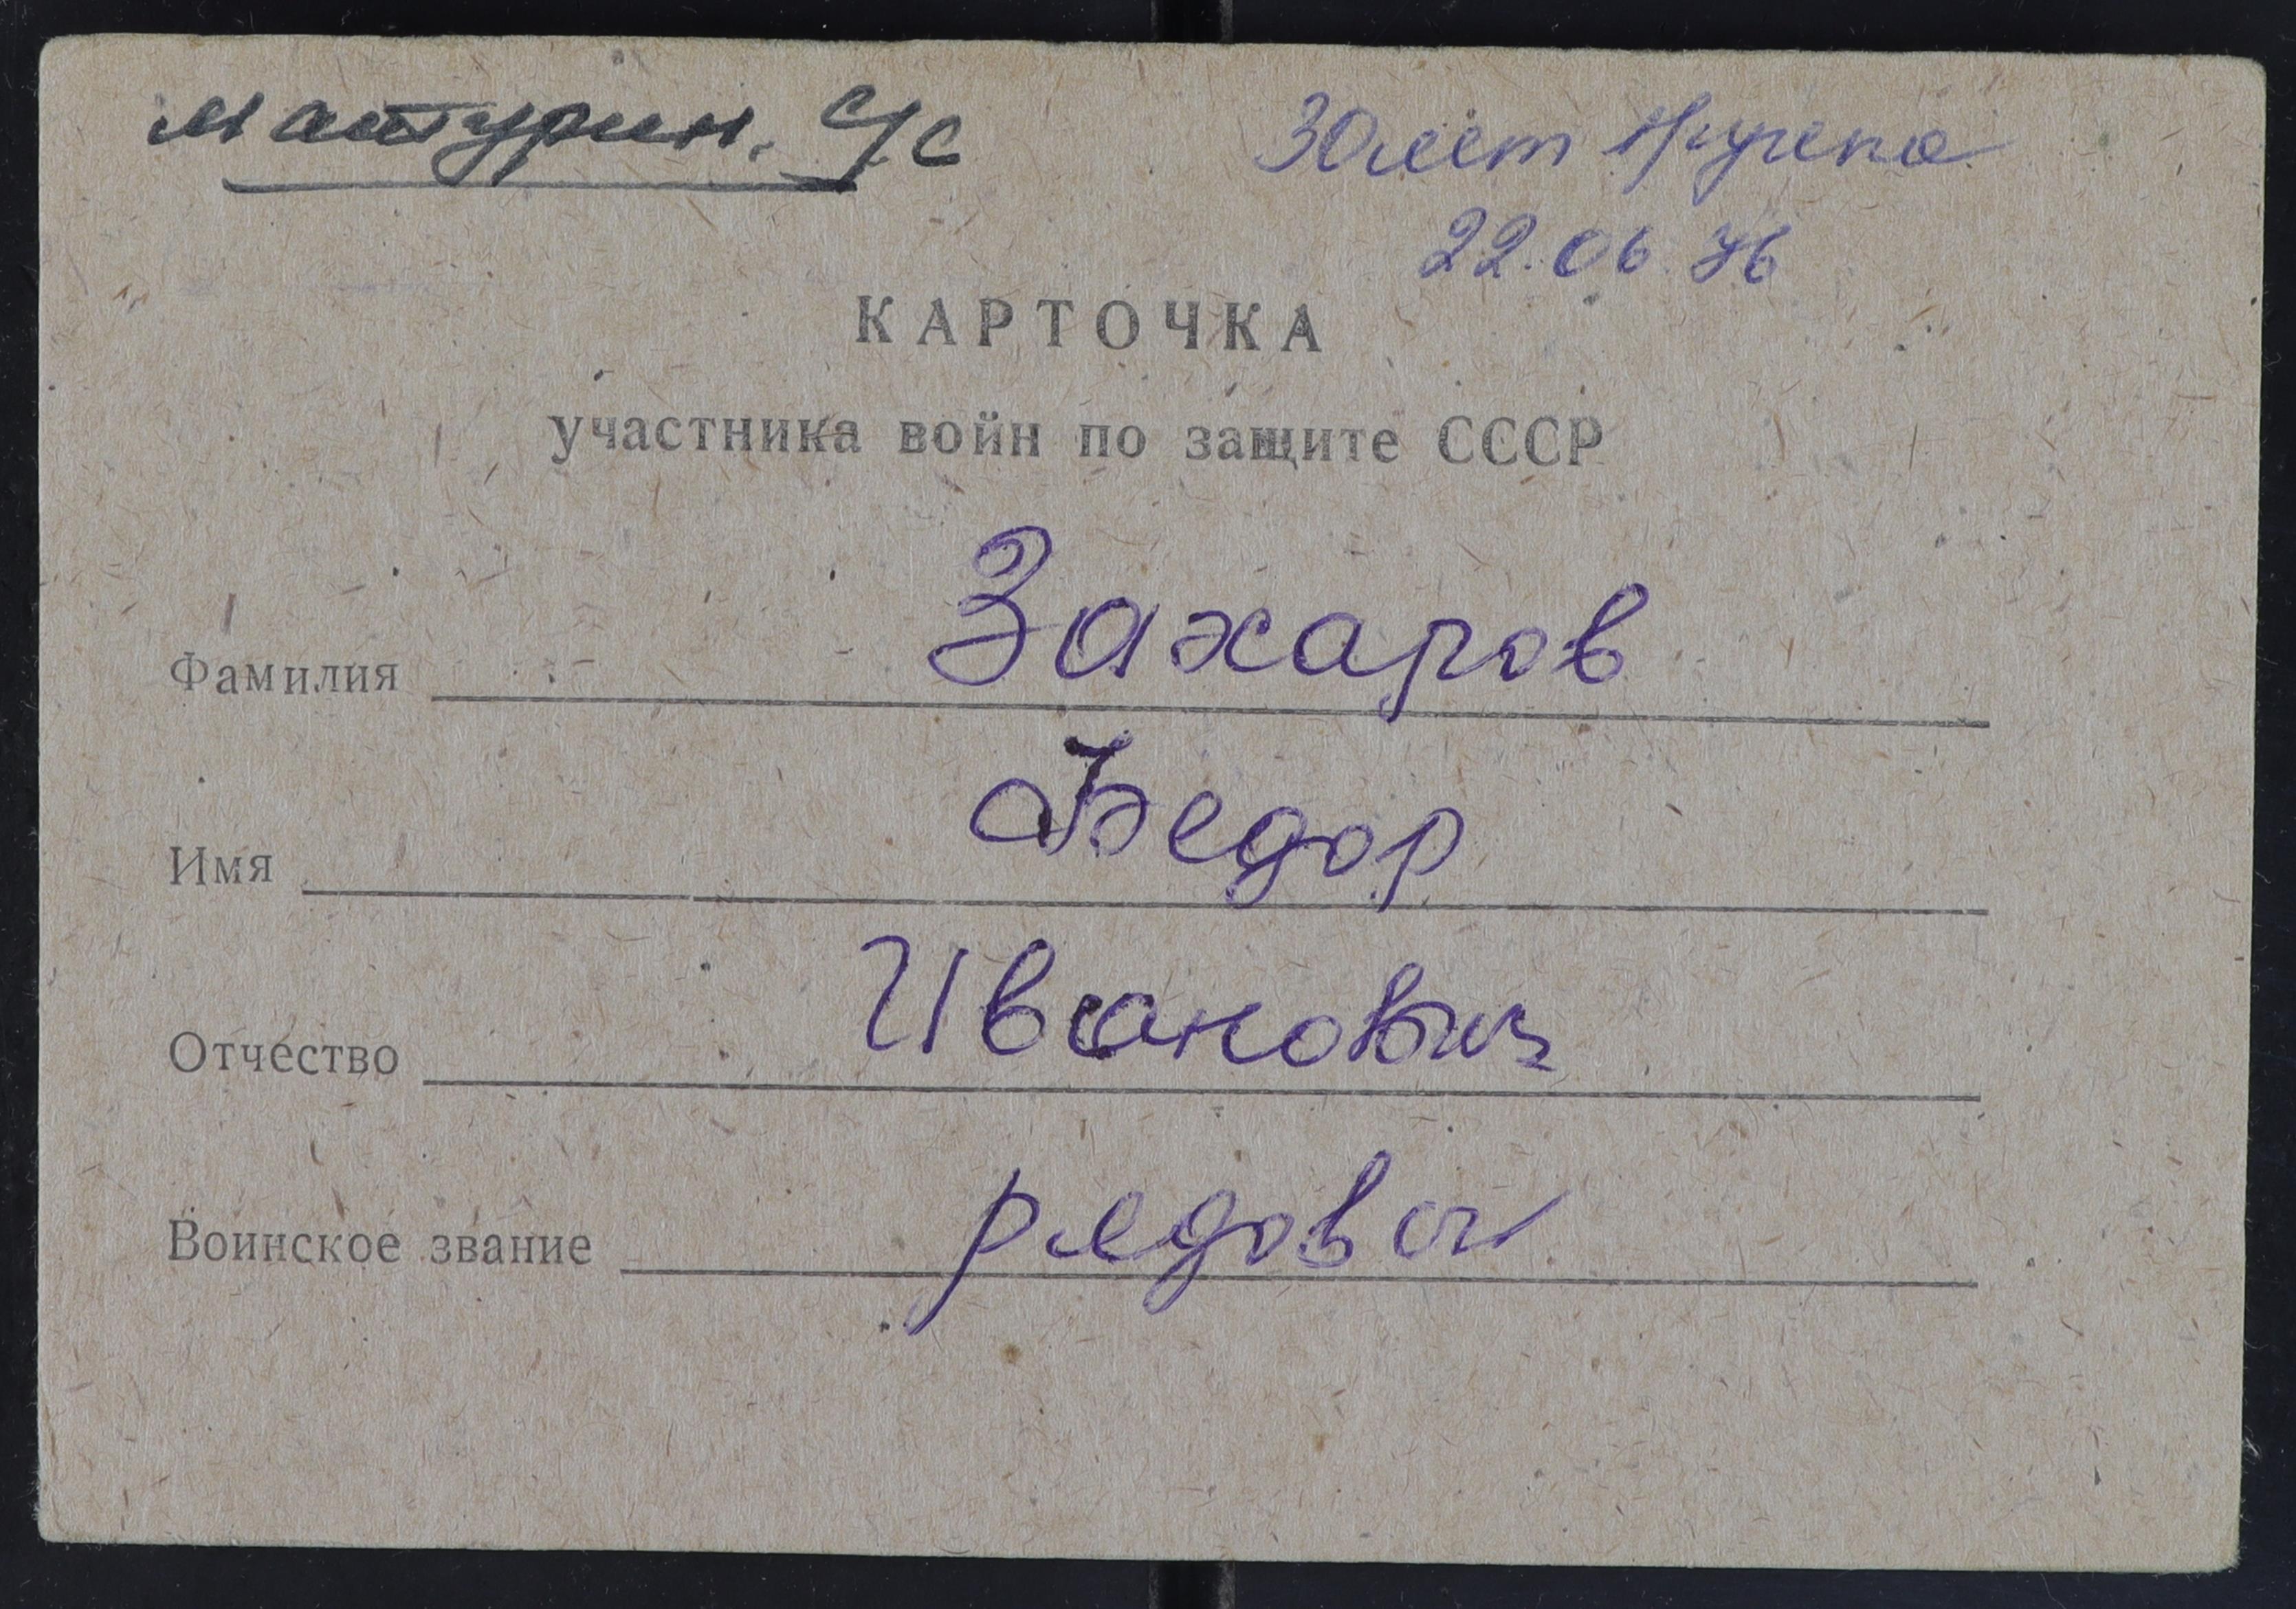 Матурин. С/С
30 лет вручена
22.06.76
КАРТОЧКА
участника войн по защите СССР
Фамилия Захаров
Имя Федор
Отчество Иванович
Воинское звание рядовой